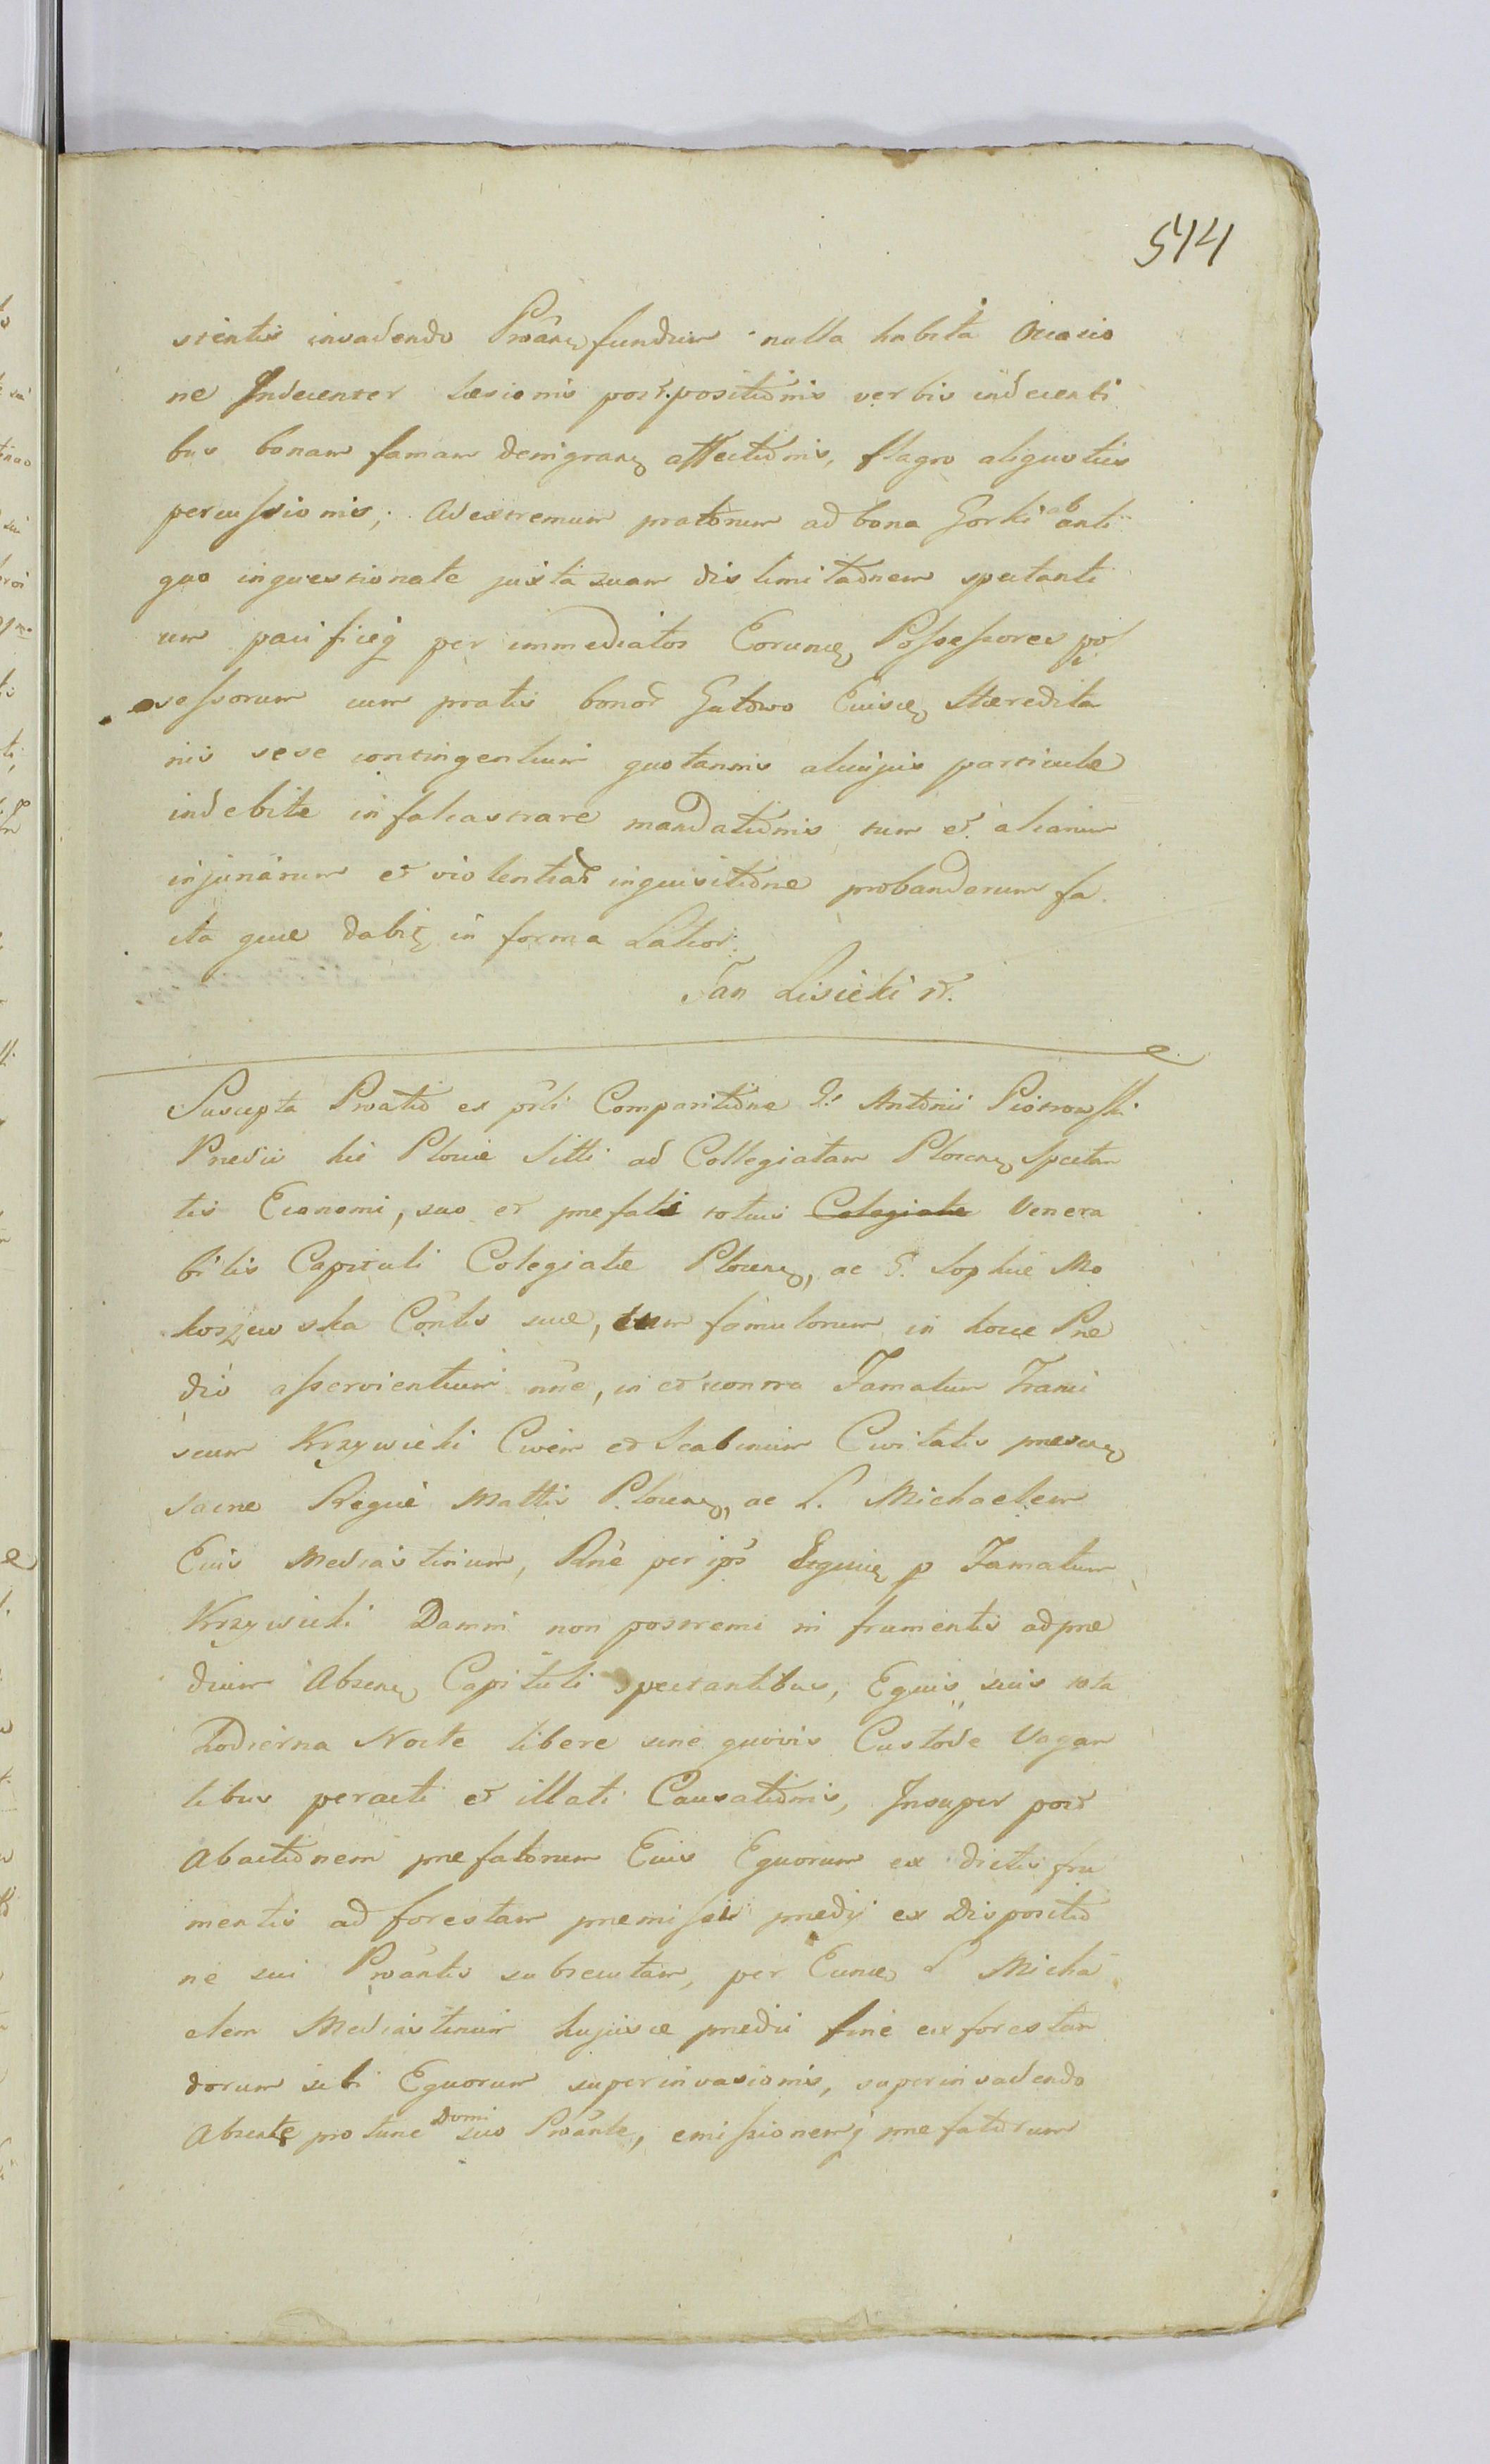 544
stentis invadendo Proāns fundum nulla habita Occasio
ne Indecenter Læsionis postpositiōnis verbis indecenti
bus bonam famam denigrare affectiōnis, flagro aliquoties
percussionis; Ad extremum pratorum ad bona Gorki ab anti
quo inquestionate juxta suam dislimitaōnem spectanti
um pacificeq per immediatos Eorunc Possessores pos
sessorum cum pratis bonor Gutowo Ejusc Hæredita
riis sese contingentium quotannis alicujus particulæ
indebite infalcastrare mandatiōnis tum et aliarum
injuriarum et violentiar inquisitiōne probandarum fa
cta quæ dabit in forma Latior.
Jan Lisicki
Suscepta Proatio ex prli Comparitiōne Antonii Piotrowski
Prædii hic Plociæ Sitti ad Collegiatam Plocens Spectan
tis Economi, suo et præfati totius Colegiatæ Venera
bilis Capituli Colegiatæ Plocens, ac G. Sophiæ Mo
koszewska Contis suæ, tum famulorum in hocce Præ
dio asservientium nne, in et contra Famatum Franci
scum Krzywicki Civem et Scabinum Civitatis præsens
Sacræ Regiæ Mattis Plocens, ac L. Michaelem
Ejus Mediastinum, Rne per ips Eqq p Famatum
Krzywicki Damni non postremi in frumentis ad præ
dium Absens Capituli spectantibus, Equis suis tota
hodierna Nocte libere sine quovis Custode Vagan
tibus peracti et illati Causatiōnis, Insuper post
Abactiōnem præfatorum Ejus Equorum ex dictis fru
mentis ad forestam præmissi prædij ex Dispositiō
ne sui Proāntis subsecutam, per Eunc L Micha
elem Mediastinum hujusce prædii fine exforestan
dorum sibi Equorum superinvasionis, superinvadendo
Absente protunc Domi suo Proānte, emissionemq præfatorum